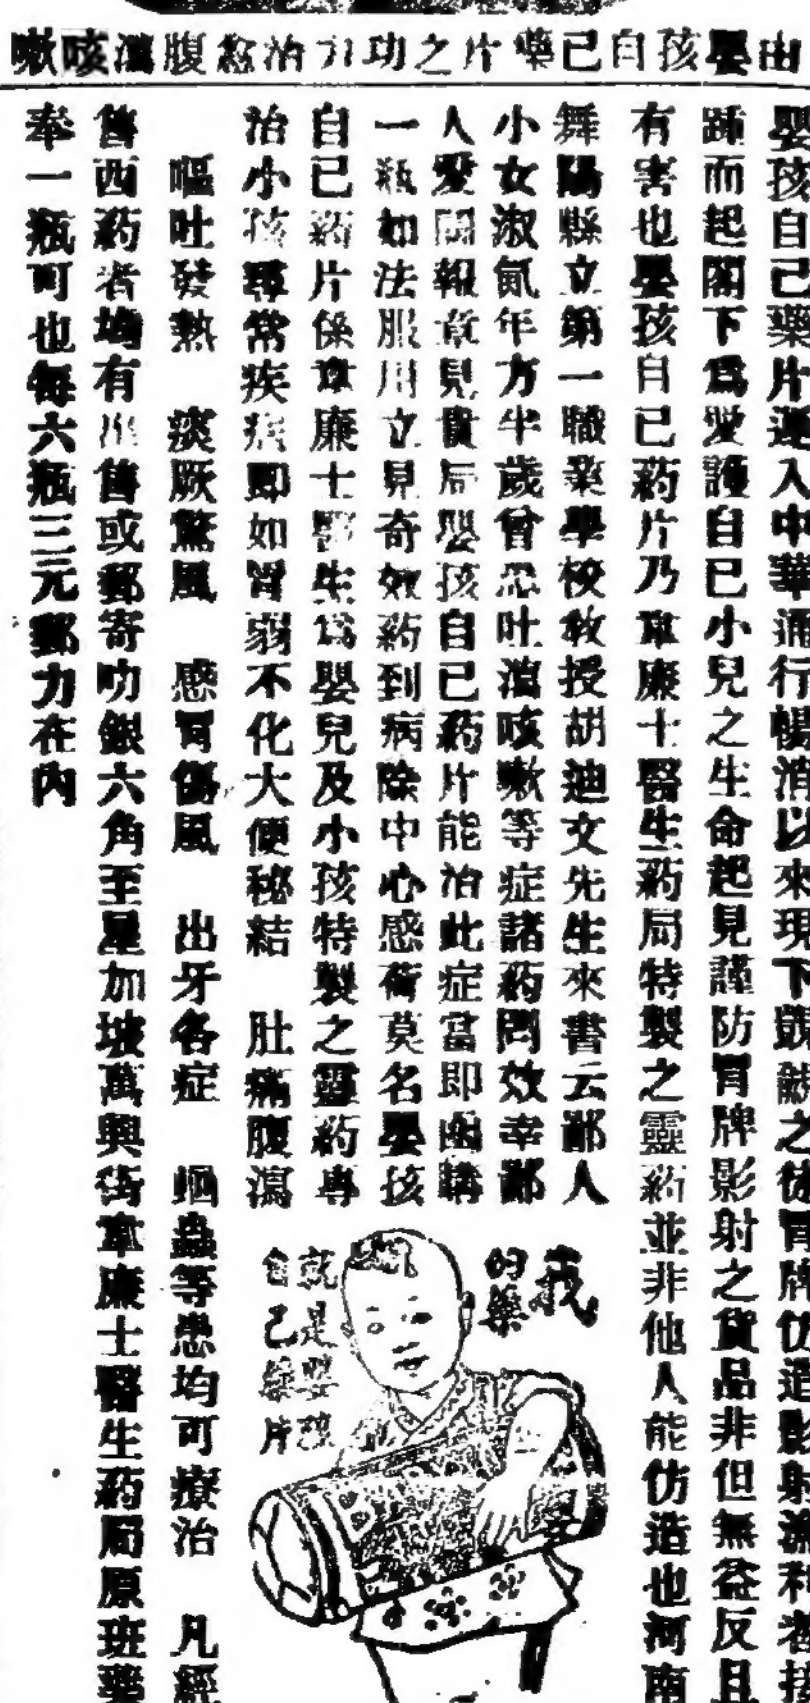 由嬰孩自己藥片之功力治愈腹瀉咳嗽
嬰孩自己藥片運入中華流行暢消以來現下覬覦之徒冒牌仿造影射漁利者接
踵而起閣下為愛護自己小兒之生命起見謹防冒牌影射之貨品非但無益反且
有害也嬰孩自己葯片乃韋廉士醫生葯局特製之靈葯並非他人能仿造也河南
舞陽縣立第一職業學校教授胡迪文先生來書云鄙人
小女淑氤年方半歲曾患吐瀉咳嗽等症諸葯罔效幸鄙
人愛閱報章見貴局嬰孩自己葯片能治此症當即函購
一瓶如法服用立見奇效葯到病除中心感荷莫名嬰孩
自己葯片係韋廉士醫生為嬰兒及小孩特製之靈葯專
治小孩尋常疾病即如胃弱不化大便秘結 肚痛腹瀉
嘔吐發熱 痰厥驚風 感冒傷風 出牙各症 蛔蟲等患均可療治 凡經
售西葯者均有出售或郵寄叻銀六角至星加坡萬興街韋廉士醫生葯局原班藥
奉一瓶可也每六瓶三元郵力在內
我的藥
就是嬰孩
自己藥片